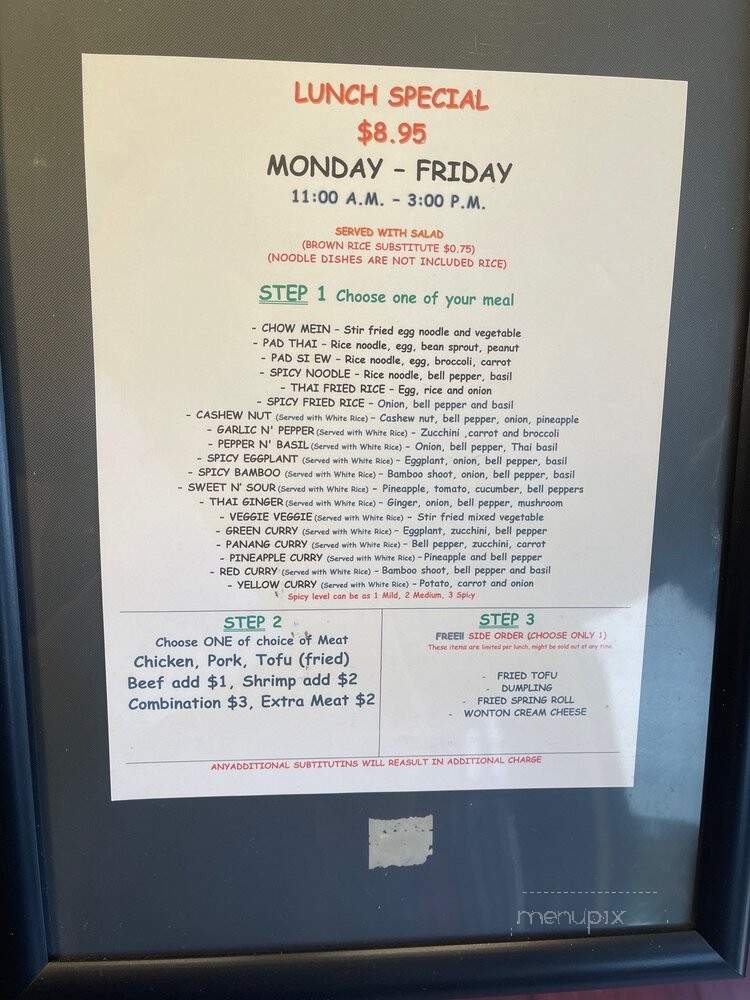 LUNCH SPECIAL
$8.95
MONDAY – FRIDAY
11:00 A.M. – 3:00 P.M.
SERVED WITH SALAD
(BROWN RICE SUBSTITUTE $0.75)
(NOODLE DISHES ARE NOT INCLUDED RICE)
STEP 1 Choose one of your meal
- CHOW MEIN – Stir fried egg noodle and vegetable
- PAD THAI – Rice noodle, egg, bean sprout, peanut
- PAD SI EW – Rice noodle, egg, broccoli, carrot
- SPICY NOODLE – Rice noodle, bell pepper, basil
- THAI FRIED RICE – Egg, rice and onion
- SPICY FRIED RICE – Onion, bell pepper and basil
- CASHEW NUT (Served with White Rice) – Cashew nut, bell pepper, onion, pineapple
- GARLIC N' PEPPER (Served with White Rice) – Zucchini ,carrot and broccoli
- PEPPER N' BASIL (Served with White Rice) – Onion, bell pepper, Thai basil
- SPICY EGGPLANT (Served with White Rice) – Eggplant, onion, bell pepper, basil
- SPICY BAMBOO (Served with White Rice) – Bamboo shoot, onion, bell pepper, basil
- SWEET N' SOUR (Served with White Rice) – Pineapple, tomato, cucumber, bell peppers
- THAI GINGER (Served with White Rice) – Ginger, onion, bell pepper, mushroom
- VEGGIE VEGGIE (Served with White Rice) – Stir fried mixed vegetable
- GREEN CURRY (Served with White Rice) – Eggplant, zucchini, bell pepper
- PANANG CURRY (Served with White Rice) – Bell pepper, zucchini, carrot
- PINEAPPLE CURRY (Served with White Rice) – Pineapple and bell pepper
- RED CURRY (Served with White Rice) – Bamboo shoot, bell pepper and basil
- YELLOW CURRY (Served with White Rice) – Potato, carrot and onion
Spicy level can be as 1 Mild, 2 Medium, 3 Spicy
STEP 2
Choose ONE of choice of Meat
Chicken, Pork, Tofu (fried)
Beef add $1, Shrimp add $2
Combination $3, Extra Meat $2
STEP 3
FREE!! SIDE ORDER (CHOOSE ONLY 1)
These items are limited per lunch, might be sold out at any time.
- FRIED TOFU
- DUMPLING
- FRIED SPRING ROLL
- WONTON CREAM CHEESE
ANYADDITIONAL SUBTITUTINS WILL REASULT IN ADDITIONAL CHARGE
menupix